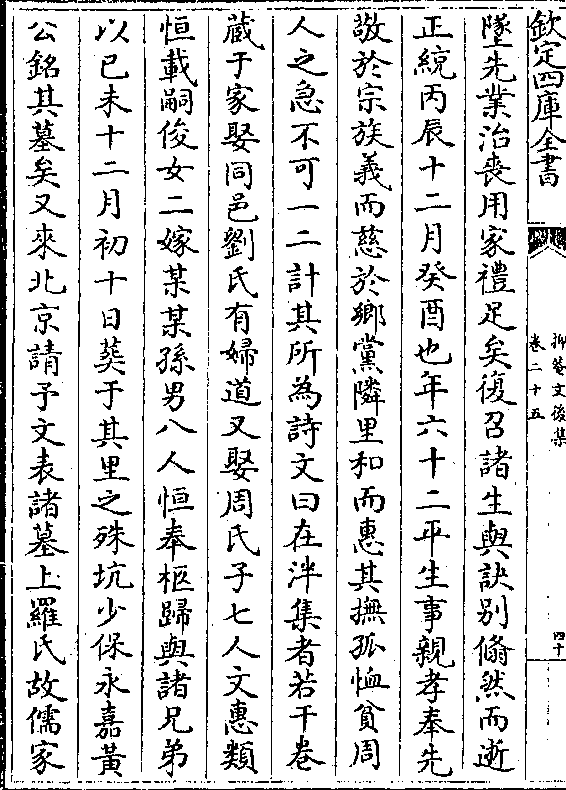 欽定四庫全書
抑菴文後集
卷二十五
四十
墜先業治喪用家禮足矣復召諸生與訣别翛然而逝
正統丙辰十二月癸酉也年六十二平生事親孝奉先
敬於宗族義而慈於鄉黨隣里和而惠其撫孤恤貧周
人之急不可一二計其所為詩文曰在泮集者若干卷
藏于家娶同邑劉氏有婦道又娶周氏子七人文惠類
恒載嗣俊女二嫁某某孫男八人恒奉柩歸與諸兄弟
以己未十二月初十日葬于其里之殊坑少保永嘉黄
公銘其墓矣又來北京請予文表諸墓上羅氏故儒家